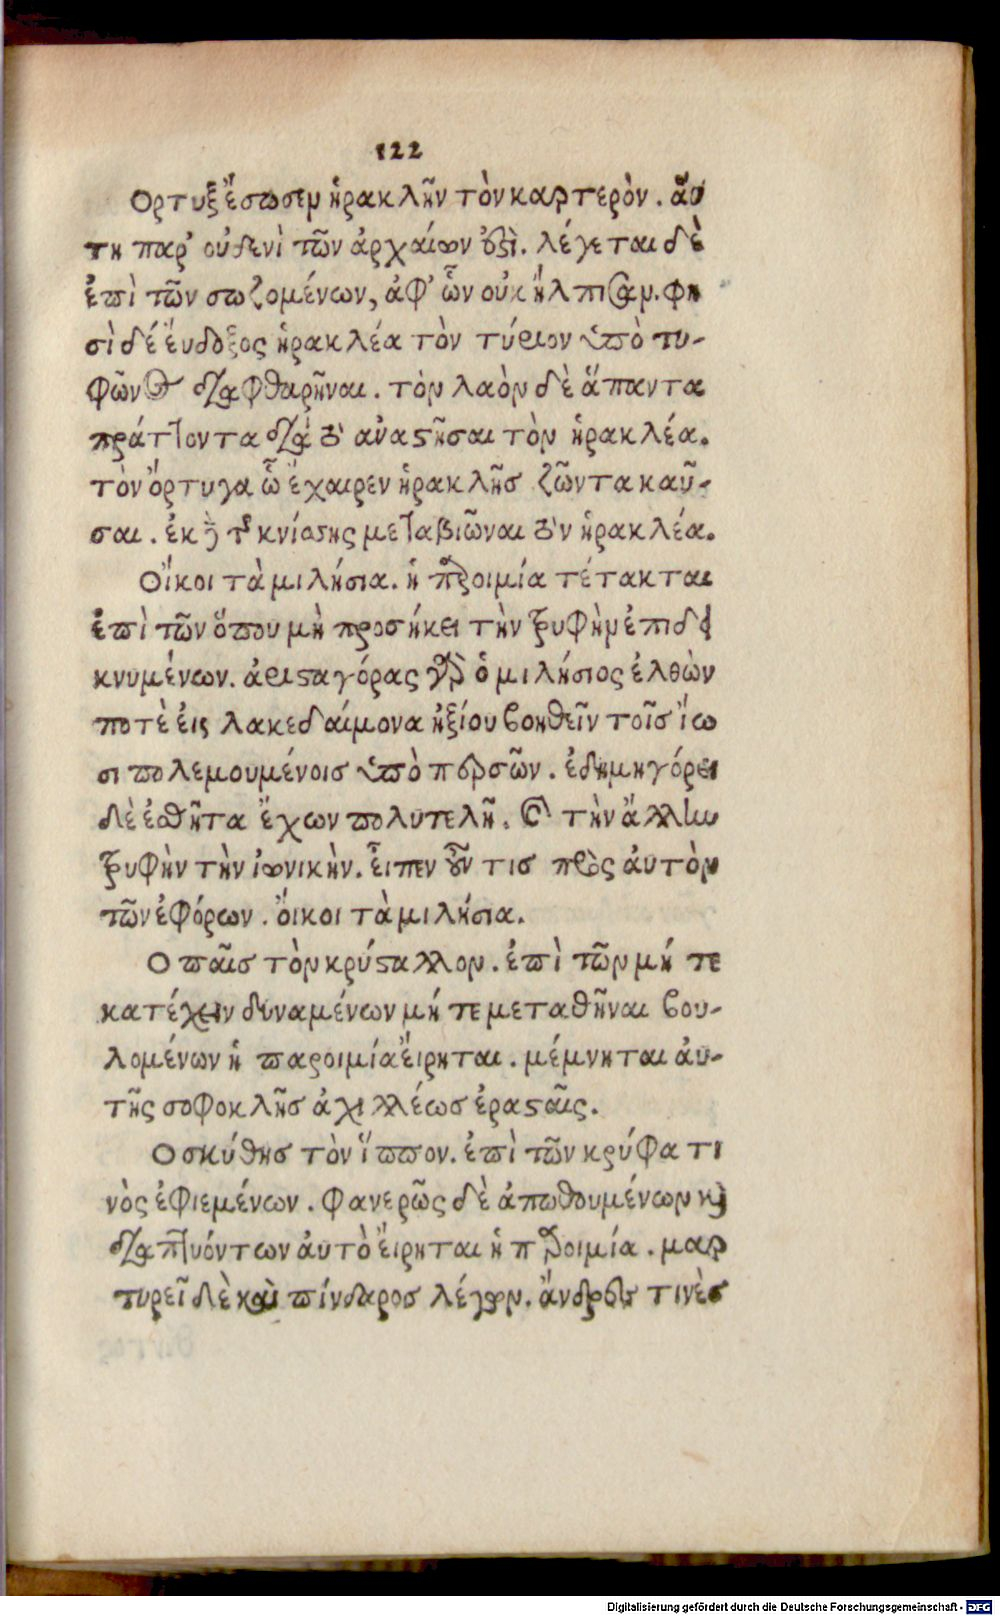 122
Ορτυξ ἔσωσεν ἡρακλῆν τὸν καρτερὸν. ἅυ
τη παρ' οὐδενὶ τῶν ἀρχαίων ἐστὶ. λέγεται δὲ
ἐπὶ τῶν σωζομένων, ἀφ' ὧν οὐκ ἤλπισαν. φη
σὶ δέ ἔυδοξος ἡρακλέα τὸν τύριον ὑπὸ τυ-
φῶνος διαφθαρῆναι. τὸν λαὸν δὲ ἅπαντα
πράττοντα διὰ τὸ ἀναστῆσαι τὸν ἡρακλέα.
τὸν ὄρτυγα ὧ ἔχαιρεν ἡρακλῆσ ζῶντα καῦ-
σαι. ἐκ δὲ τῆς κνίσης μεταβιῶναι τὸν ἡρακλέα.
Οἴκοι τὰ μιλήσια. ἡ παροιμία τέτακται
ἐπὶ τῶν ὅπου μὴ προσήκει τὴν τρυφὴν ἐπιδει
κνυμένων. ἀρισταγόρας γὰρ ὁ μιλήσιος ἐλθὼν
ποτὲ ἐις λακεδαίμονα ἠξίου βοηθεῖν τοῖσ ἴω
σι πολεμουμένοισ ὑπὸ περσῶν. ἐδημηγόρει
δὲ ἐσθῆτα ἔχων πολυτελῆ. καὶ τὴν ἄλλην
τρυφὴν τὴν ἰωνικὴν. ἔιπεν οὖν τισ πρὸς ἀυτὸν
τῶν ἐφόρων. ὄικοι τὰ μιλήσια.
Ο παῖσ τὸν κρύσταλλον. ἐπὶ τῶν μή τε
κατέχειν δυναμένων μή τε μεταθῆναι βου-
λομένων ἡ παροιμία ἔιρηται. μέμνηται ἀυ-
τῆς σοφοκλῆσ ἀχιλλέωσ ἐρασταῖς.
Ο σκύθησ τὸν ἵππον. ἐπὶ τῶν κρύφα τι
νὸς ἐφιεμένων. φανερῶς δὲ ἀπωθουμένων καὶ
διαπτυόντων ἀυτὸ ἔιρηται ἡ παροιμία. μαρ
τυρεῖ δὲ καὶ πίνδαροσ λέγων. ἄνδρες τινὲσ
Digitalisierung gefördert durch die Deutsche Forschungsgemeinschaft - DFG